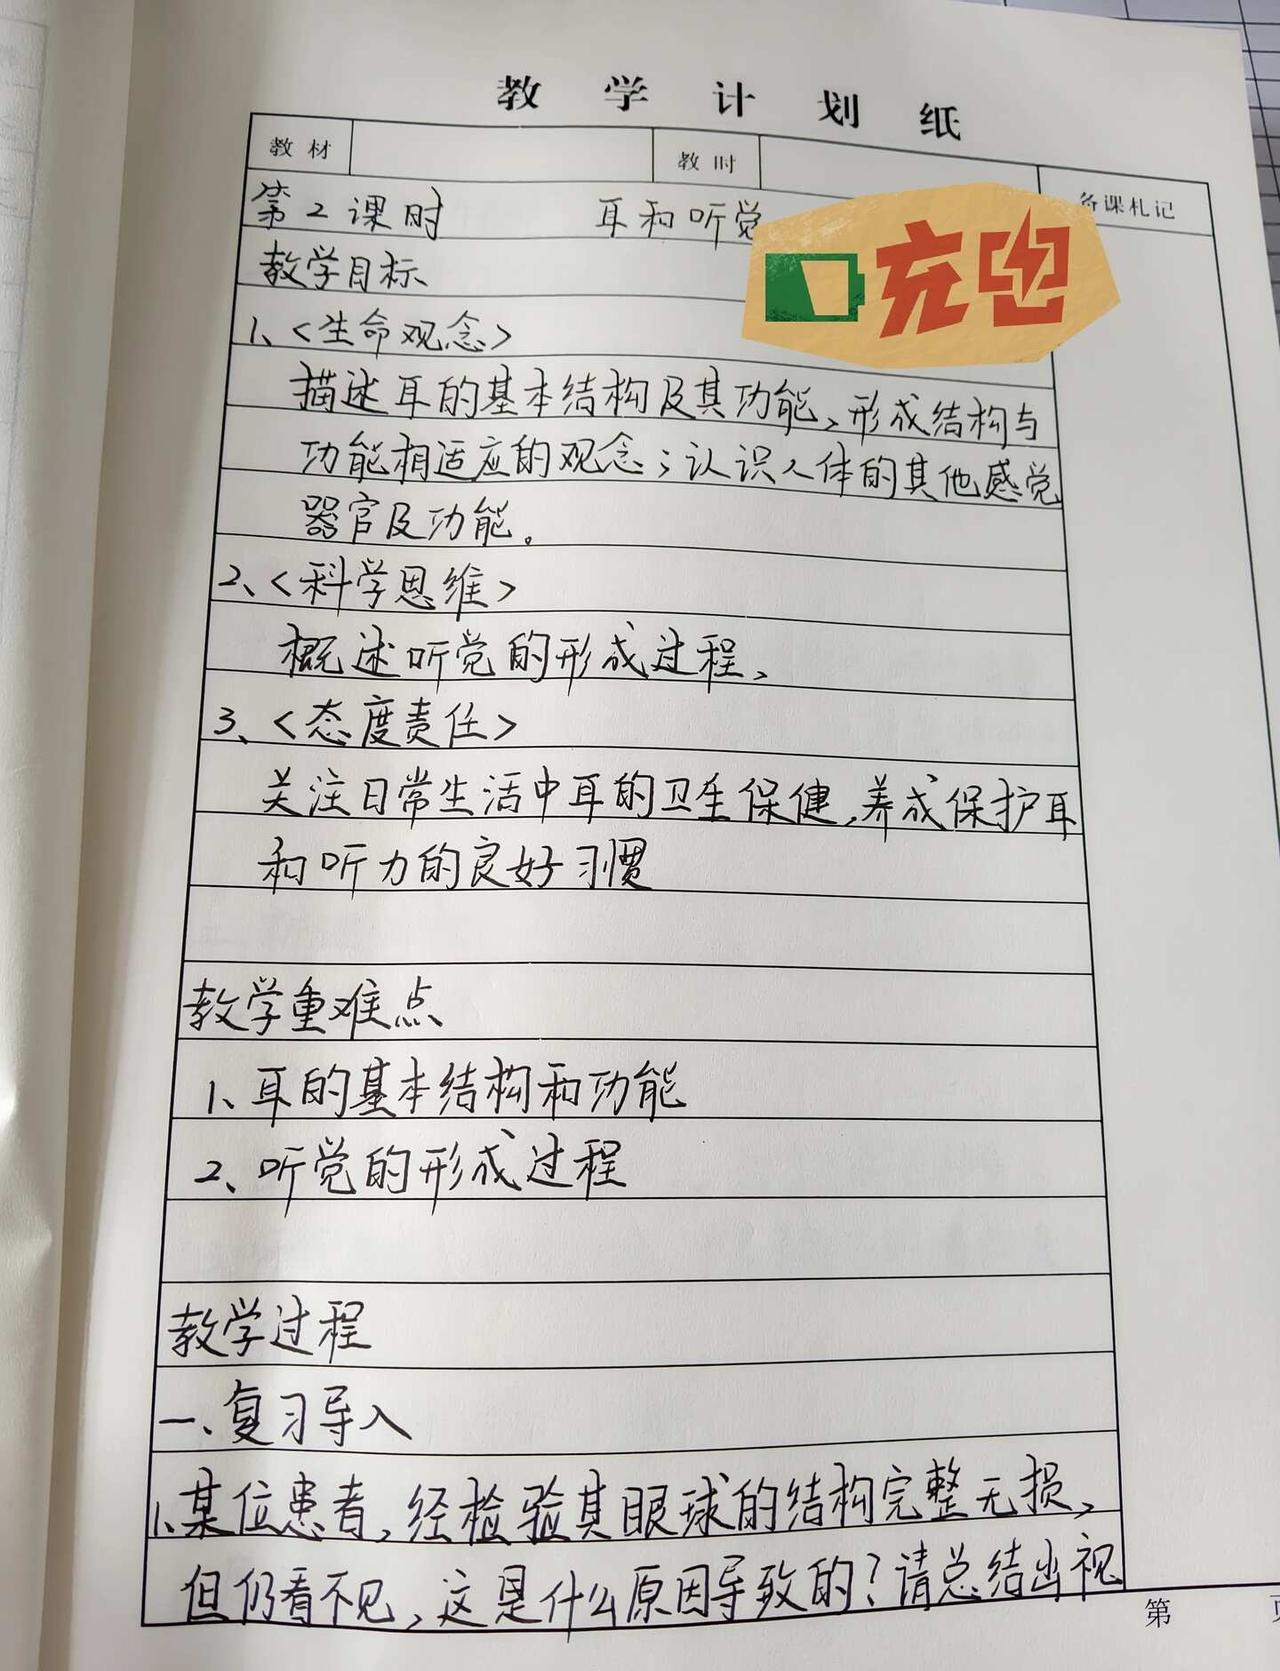 教学计划纸
教材 教时 备课札记
第2课时 耳和听觉
充电
教学目标
1、<生命观念>
描述耳的基本结构及其功能、形成结构与
功能相适应的观念;认识人体的其他感觉
器官及功能。
2、<科学思维>
概述听觉的形成过程、
3、<态度责任>
关注日常生活中耳的卫生保健,养成保护耳
和听力的良好习惯
教学重难点
1、耳的基本结构和功能
2、听觉的形成过程
教学过程
一、复习导入
1、某位患者,经检验其眼球的结构完整无损、
但仍看不见,这是什么原因导致的?请总结出视
第 页